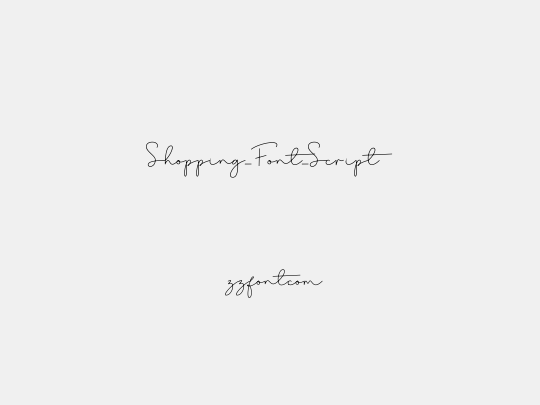 Shopping_Font_Script
zzfontcom